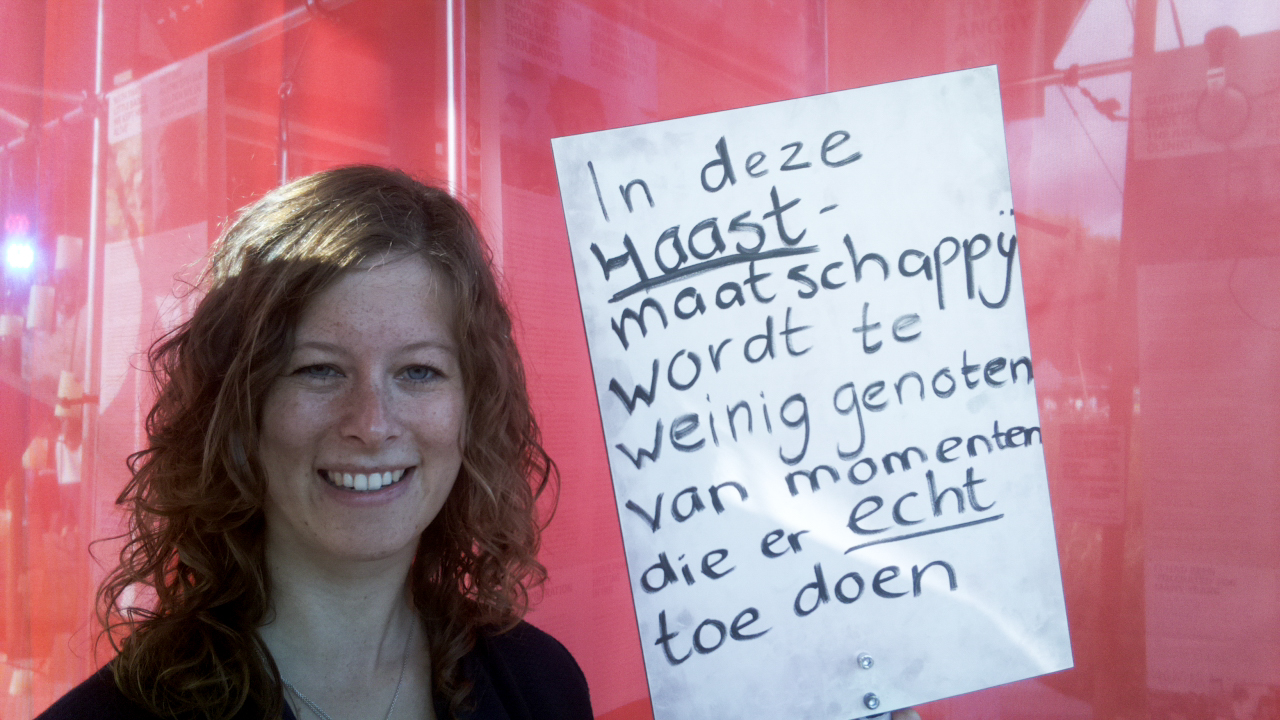 In deze
Haast-
maatschappij
wordt te
weinig genoten
van momenten
die er echt
toe doen